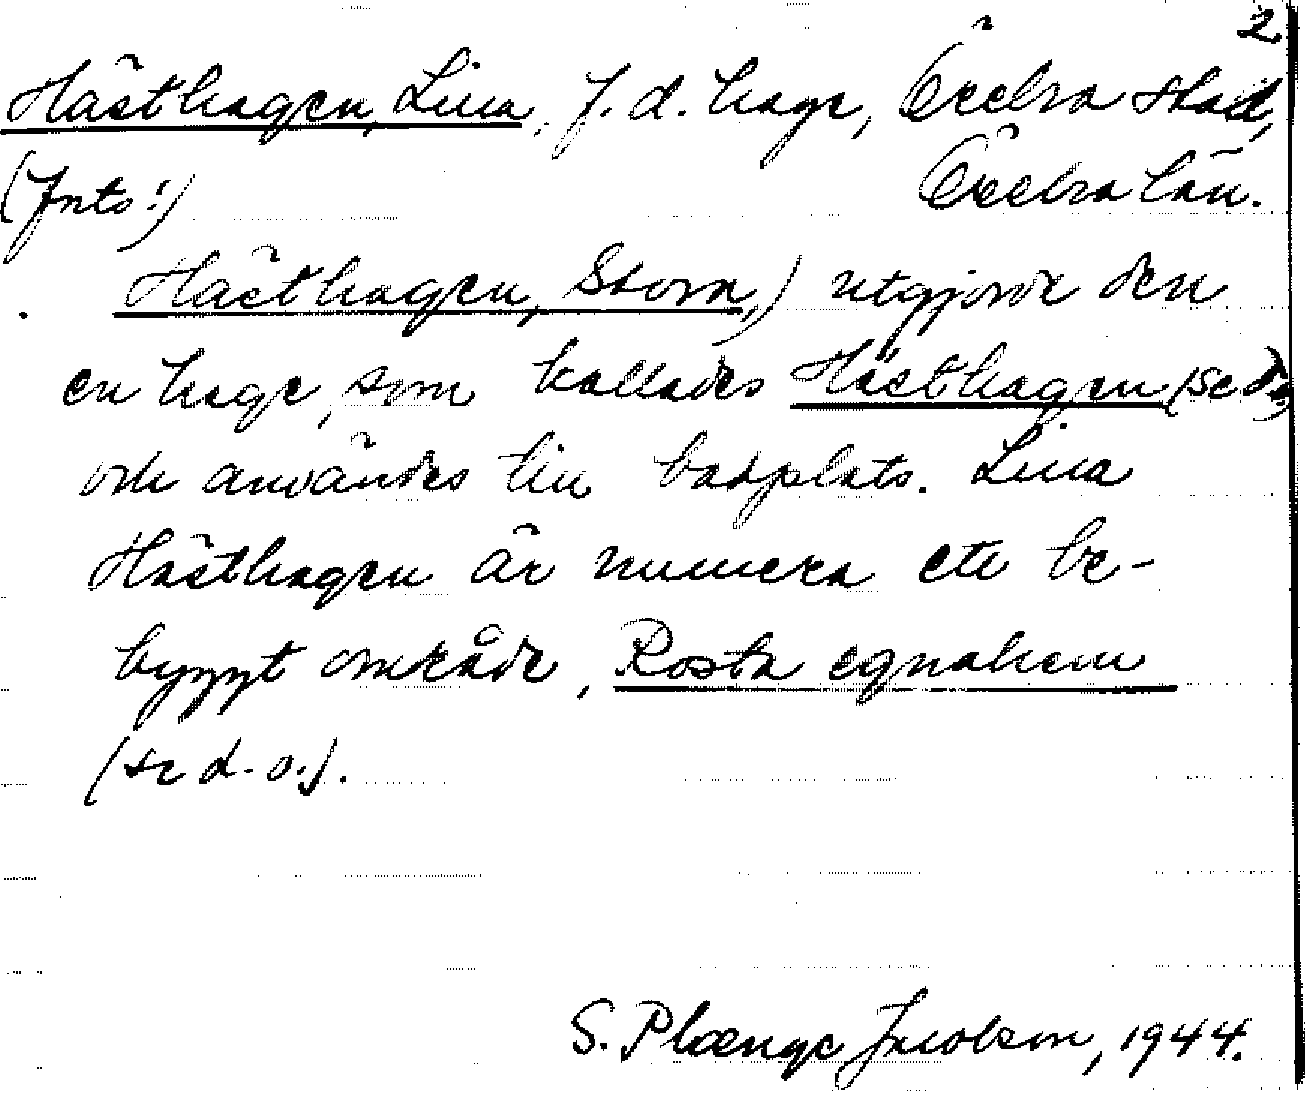 2
Hästhagen, Lilla, f. d. hage, Örebro stad,
(Forts.) Örebro län.
Hästhagen, Stora,) utgjorde den
en hage, som kallades Hästhagen (se d.o)
och användes till badplats. Lilla
Hästhagen är numera ett be-
byggt område, Rosta egnahem
(se d. o.).
S. Plænge Jacobson, 1944.